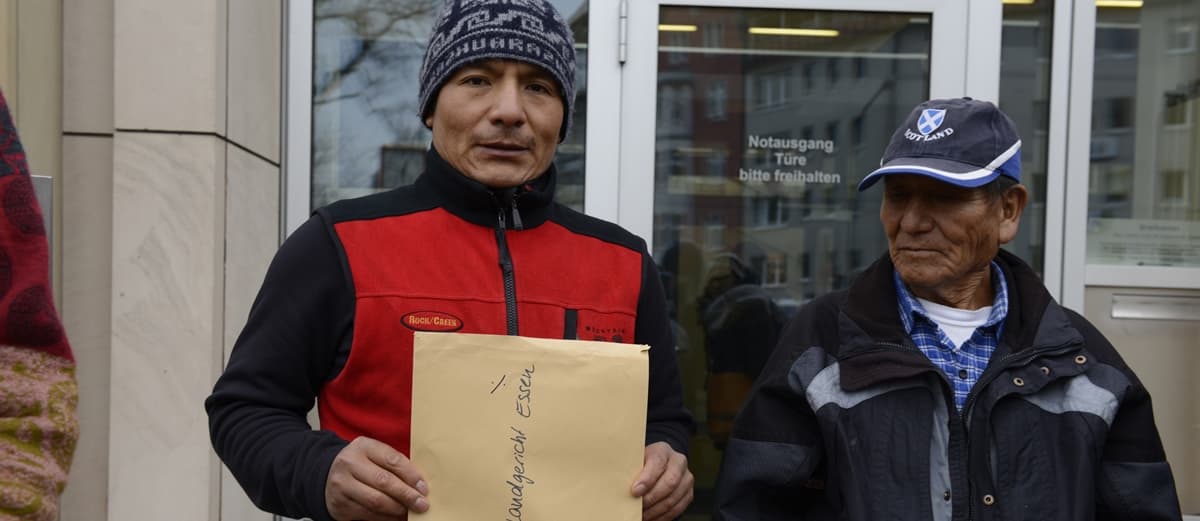 PHUARAZ
Notausgang
Türe
bitte freihalten
SCOTLAND
ROCK/CREEK
Landgericht Essen